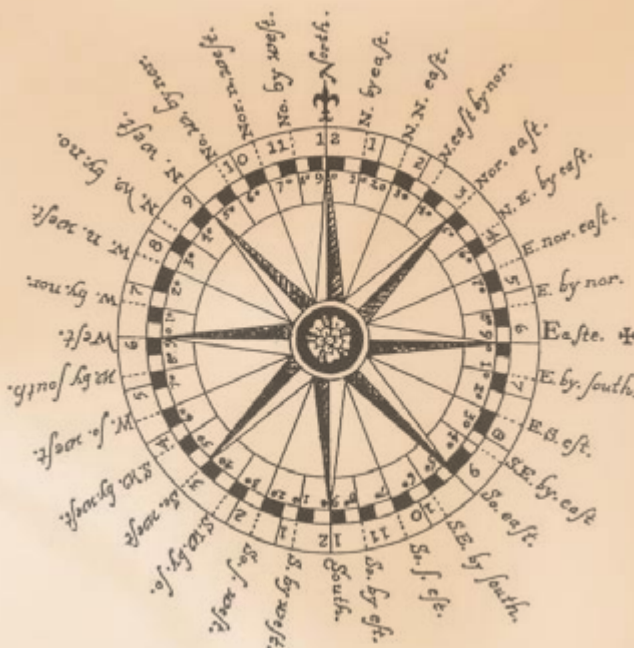 North.
N. by eaſt.
N. N. eaſt.
N. eaſt by nor.
Nor. eaſt.
N. E. by eaſt.
E. nor. eaſt.
E. by nor.
Eaſte.
E. by. ſouth.
E. S. eſt.
S. E. by. eaſt
So. eaſt.
S. E. by ſouth.
So. ſ. eſt.
So. by eſt.
South.
S. by weſt.
So. ſ. weſt.
S. W by. ſo.
So. weſt
S. W. by. weſt.
W. ſo. weſt.
W. by ſouth.
Weſt.
W. by. nor.
W. n. weſt.
N. w. by. no.
N. weſt.
No. w. by. nor.
Nor n. weſt.
No. by weſt.
12
1
2
3
4
5
6
7
8
9
10
11
12
1
2
3
4
5
6
7
8
9
10
11